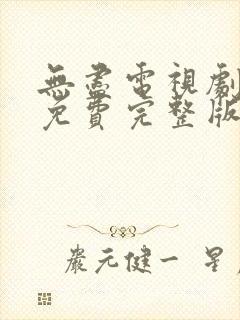 無盡電視劇
免費完整版
嚴元健一 星